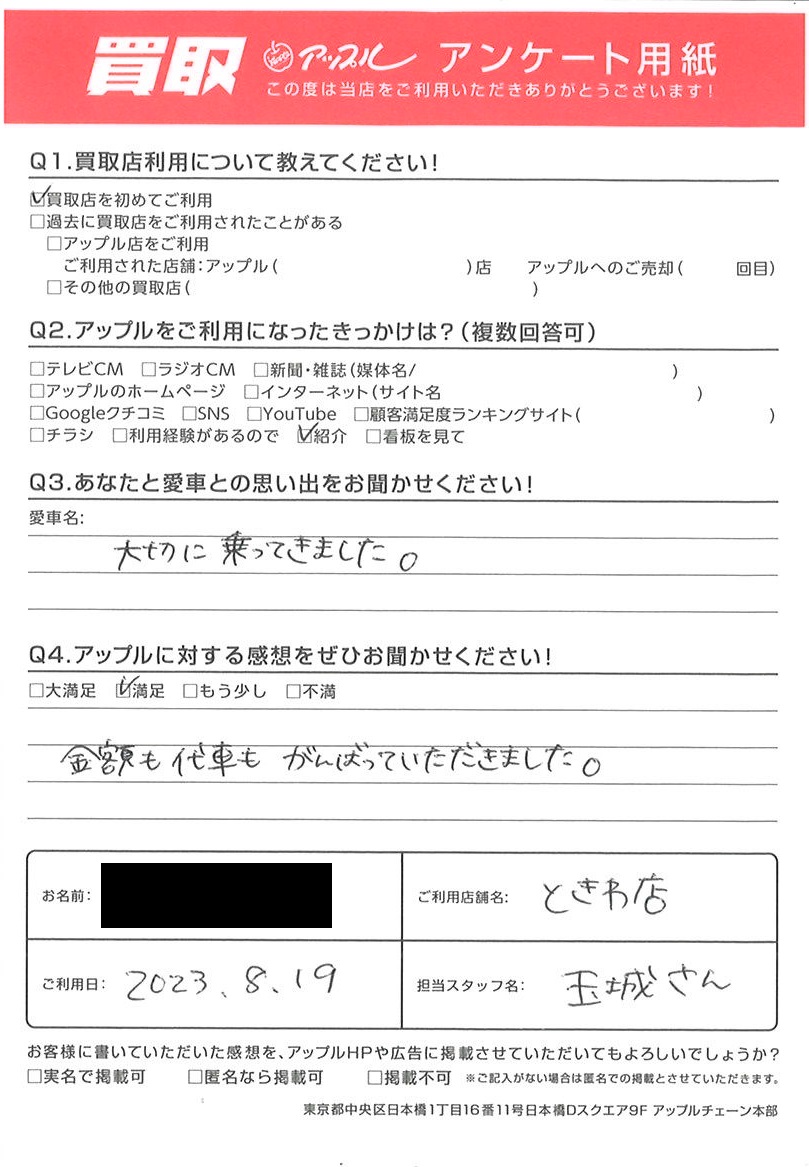 買取 アップル アンケート用紙
この度は当店をご利用いただきありがとうございます!
Q1.買取店利用について教えてください!
☑買取店を初めてご利用
□過去に買取店をご利用されたことがある
□アップル店をご利用
ご利用された店舗:アップル( )店 アップルへのご売却( 回目)
□その他の買取店( )
Q2.アップルをご利用になったきっかけは?(複数回答可)
□テレビCM □ラジオCM □新聞・雑誌(媒体名/ )
□アップルのホームページ □インターネット(サイト名 )
□Googleクチコミ □SNS □YouTube □顧客満足度ランキングサイト( )
□チラシ □利用経験があるので ☑紹介 □看板を見て
Q3.あなたと愛車との思い出をお聞かせください!
愛車名:
大切に乗ってきました。
Q4.アップルに対する感想をぜひお聞かせください!
□大満足 ☑満足 □もう少し □不満
金額も代車も がんばっていただきました。
お名前:
ご利用店舗名: ときわ店
ご利用日: 2023.8.19
担当スタッフ名: 玉城さん
お客様に書いていただいた感想を、アップルHPや広告に掲載させていただいてもよろしいでしょうか?
□実名で掲載可 □匿名なら掲載可 □掲載不可 ※ご記入がない場合は匿名での掲載とさせていただきます。
東京都中央区日本橋1丁目16番11号日本橋Dスクエア9F アップルチェーン本部